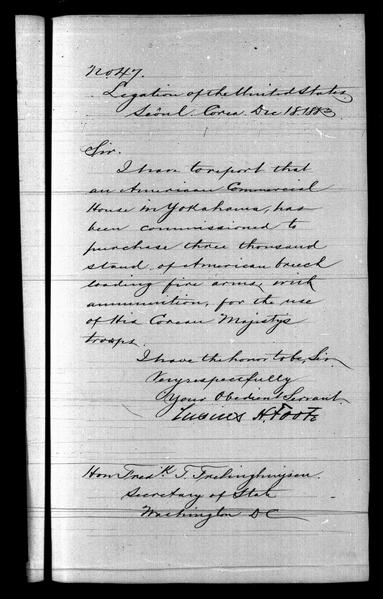 No. 47.
Legation of the United States
Seóul. Corea. Dec 18. 1883
Sir.
I have to report that
an American Commercial
House in Yokahama, has
been commissioned to
purchase three thousand
stand of American breech
loading fire arms, with
ammunition, for the use
of His Corean Majestys
troops.
I have the honor to be, Sir.
Very respectfully
Your Obedient Servant.
Lucius H. Foote
Hon Fredk. T. Frelinghuysen.
Secretary of State
Washington DC